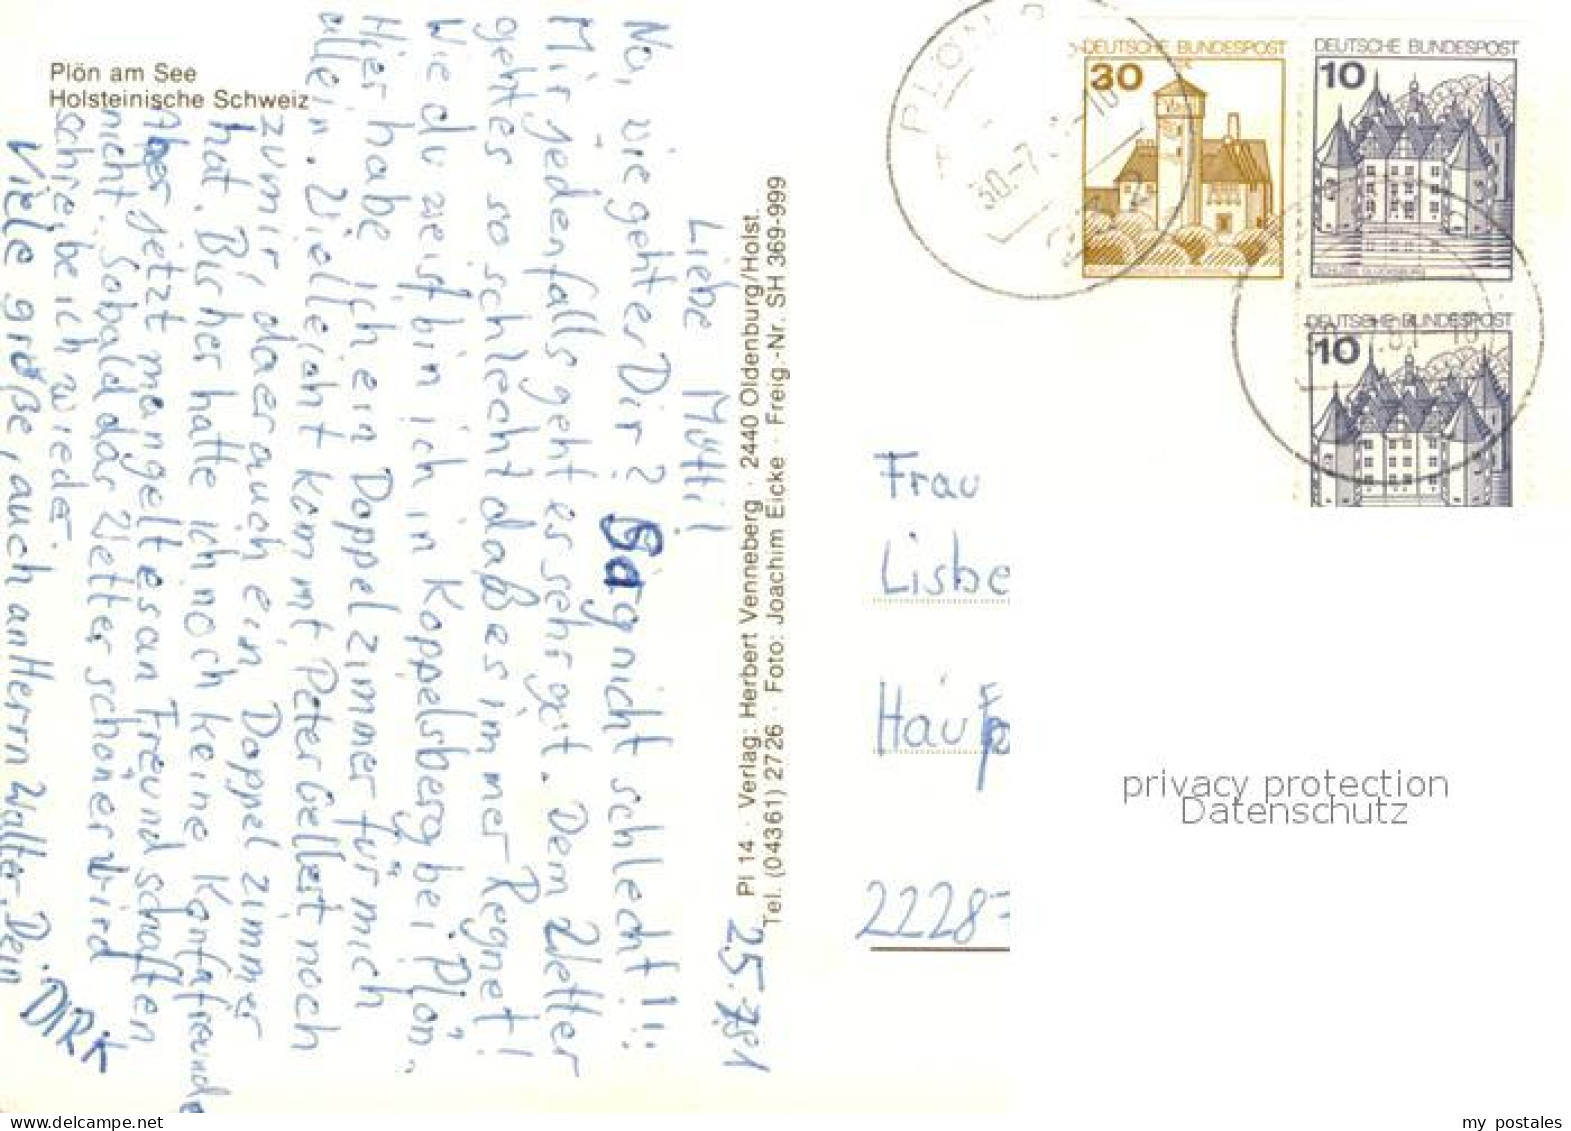 Plön am See
Holsteinische Schweiz
25.7.81
Liebe Mutti!
Na, wie geht er Dir? Sag nicht schlecht!!!
Mir jedenfalls geht es sehr gut. Dem Wetter
geht es so schlecht daß es immer Regnet!
Wie du weist bin ich in Koppelsberg bei Plön.
Hier habe ich ein Doppelzimmer für mich
allein. Vielleicht kommt Peter Gellert noch
zu mir, da er auch ein Doppelzimmer
hat. Bisher hatte ich noch keine Konfafreunde
Aber jetzt mangelt es an Freundschaften
nicht. Sobald das Wetter schöner wird
schreibe ich wieder
Viele grüße, auch an Herrn Walter, Dein
DIRK
Pl 14 · Verlag: Herbert Venneberg · 2440 Oldenburg/Holst.
Tel. (04361) 2726 · Foto: Joachim Eicke · Freig.-Nr. SH 369-999
PLÖN
30.-7.
DEUTSCHE BUNDESPOST
30
DEUTSCHE BUNDESPOST
10
SCHLOSS GLÜCKSBURG
DEUTSCHE BUNDESPOST
10
Frau
Lisbe
Haup
2228
privacy protection
Datenschutz
www.delcampe.net
my_postales